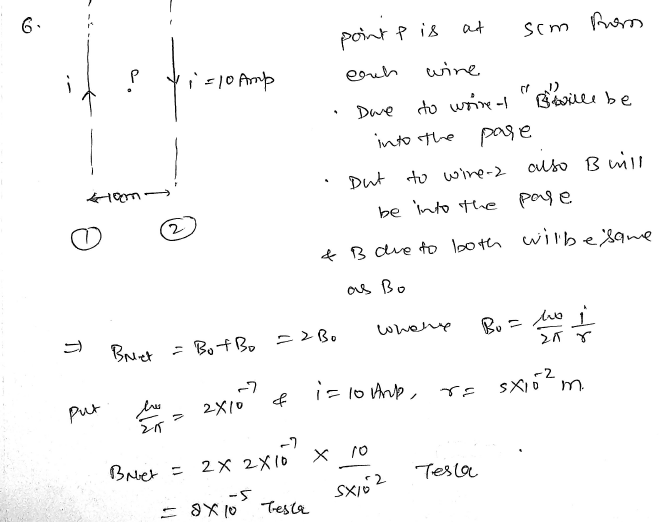 6.
point P is at 5cm from
each wire
i P i = 10 Amp
• Due to wire-1 "B" will be
into the page
• Due to wire-2 also B will
be into the page
10cm
① ②
& B due to both will be same
as B₀
⇒ BNet = B₀ + B₀ = 2B₀ where B₀ = μ₀/2π i/r
put μ₀/2π = 2×10⁻⁷ & i = 10 Amp, r = 5×10⁻² m
BNet = 2 × 2×10⁻⁷ × 10/5×10⁻² Tesla
= 8×10⁻⁵ Tesla